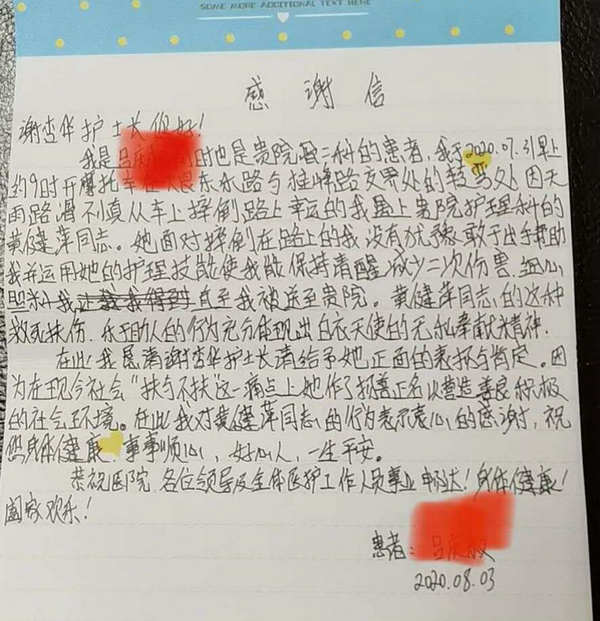 SOME MORE ADDITIONAL TEXT HERE
感谢信
谢杏华护士长你好!
我是 同时也是贵院 二科的患者,我于2020.07.31早上
约9时开摩托车在 东永路与桂牌路交界处的转弯处因天
雨路滑不慎从车上摔倒路上幸运的我遇上贵院护理科的
黄健萍同志。她面对摔倒在路上的我没有犹豫敢于出手帮助
我并运用她的护理技能使我能保持清醒减少二次伤害.细心
照料我 直至我被送至贵院。黄健萍同志的这种
救死扶伤.乐于助人的行为充分体现出白衣天使的无私奉献精神.
在此我恳请谢杏华护士长请给予她正面的表扬与肯定。因
为在现今社会“扶与不扶”这一痛点上她作了 善正名以营造善良积极
的社会环境。在此我对黄健萍同志的行为表示衷心的感谢,祝
您身体健康 事事顺心,好心人,一生平安。
恭祝医院.各位领导及全体医护工作人员事业畅达!身体健康!
阖家欢乐!
患者:
2020.08.03